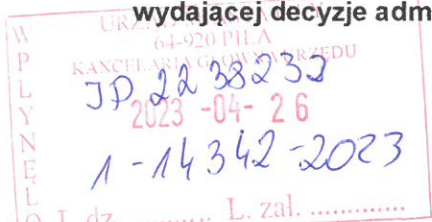 wydającej decyzje adm
64-920 PIŁA
KANCELARIA GŁÓWNA URZĘDU
WPŁYNĘŁO
JP 2238232
2023 -04- 26
1-14342-2023
L. dz. .......... L. zał. ..........